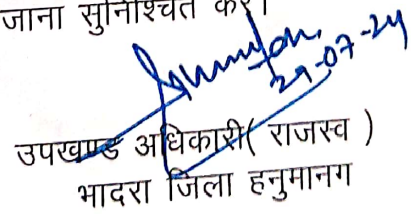 जाना सुनिश्चित करें।
29-07-24
उपखण्ड अधिकारी( राजस्व )
भादरा जिला हनुमानग